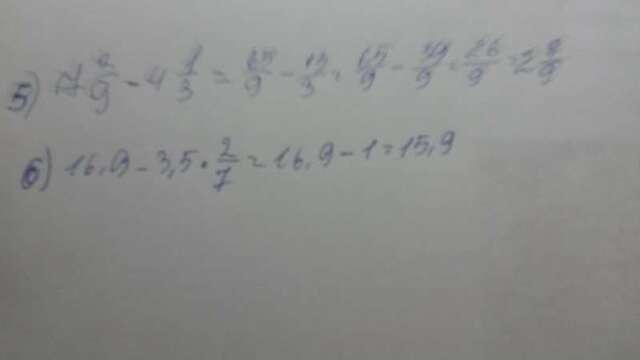 5) 7 2/9 - 4 1/3 = 65/9 - 13/3 = 65/9 - 39/9 = 26/9 = 2 8/9
6) 16,9 - 3,5 · 2/7 = 16,9 - 1 = 15,9